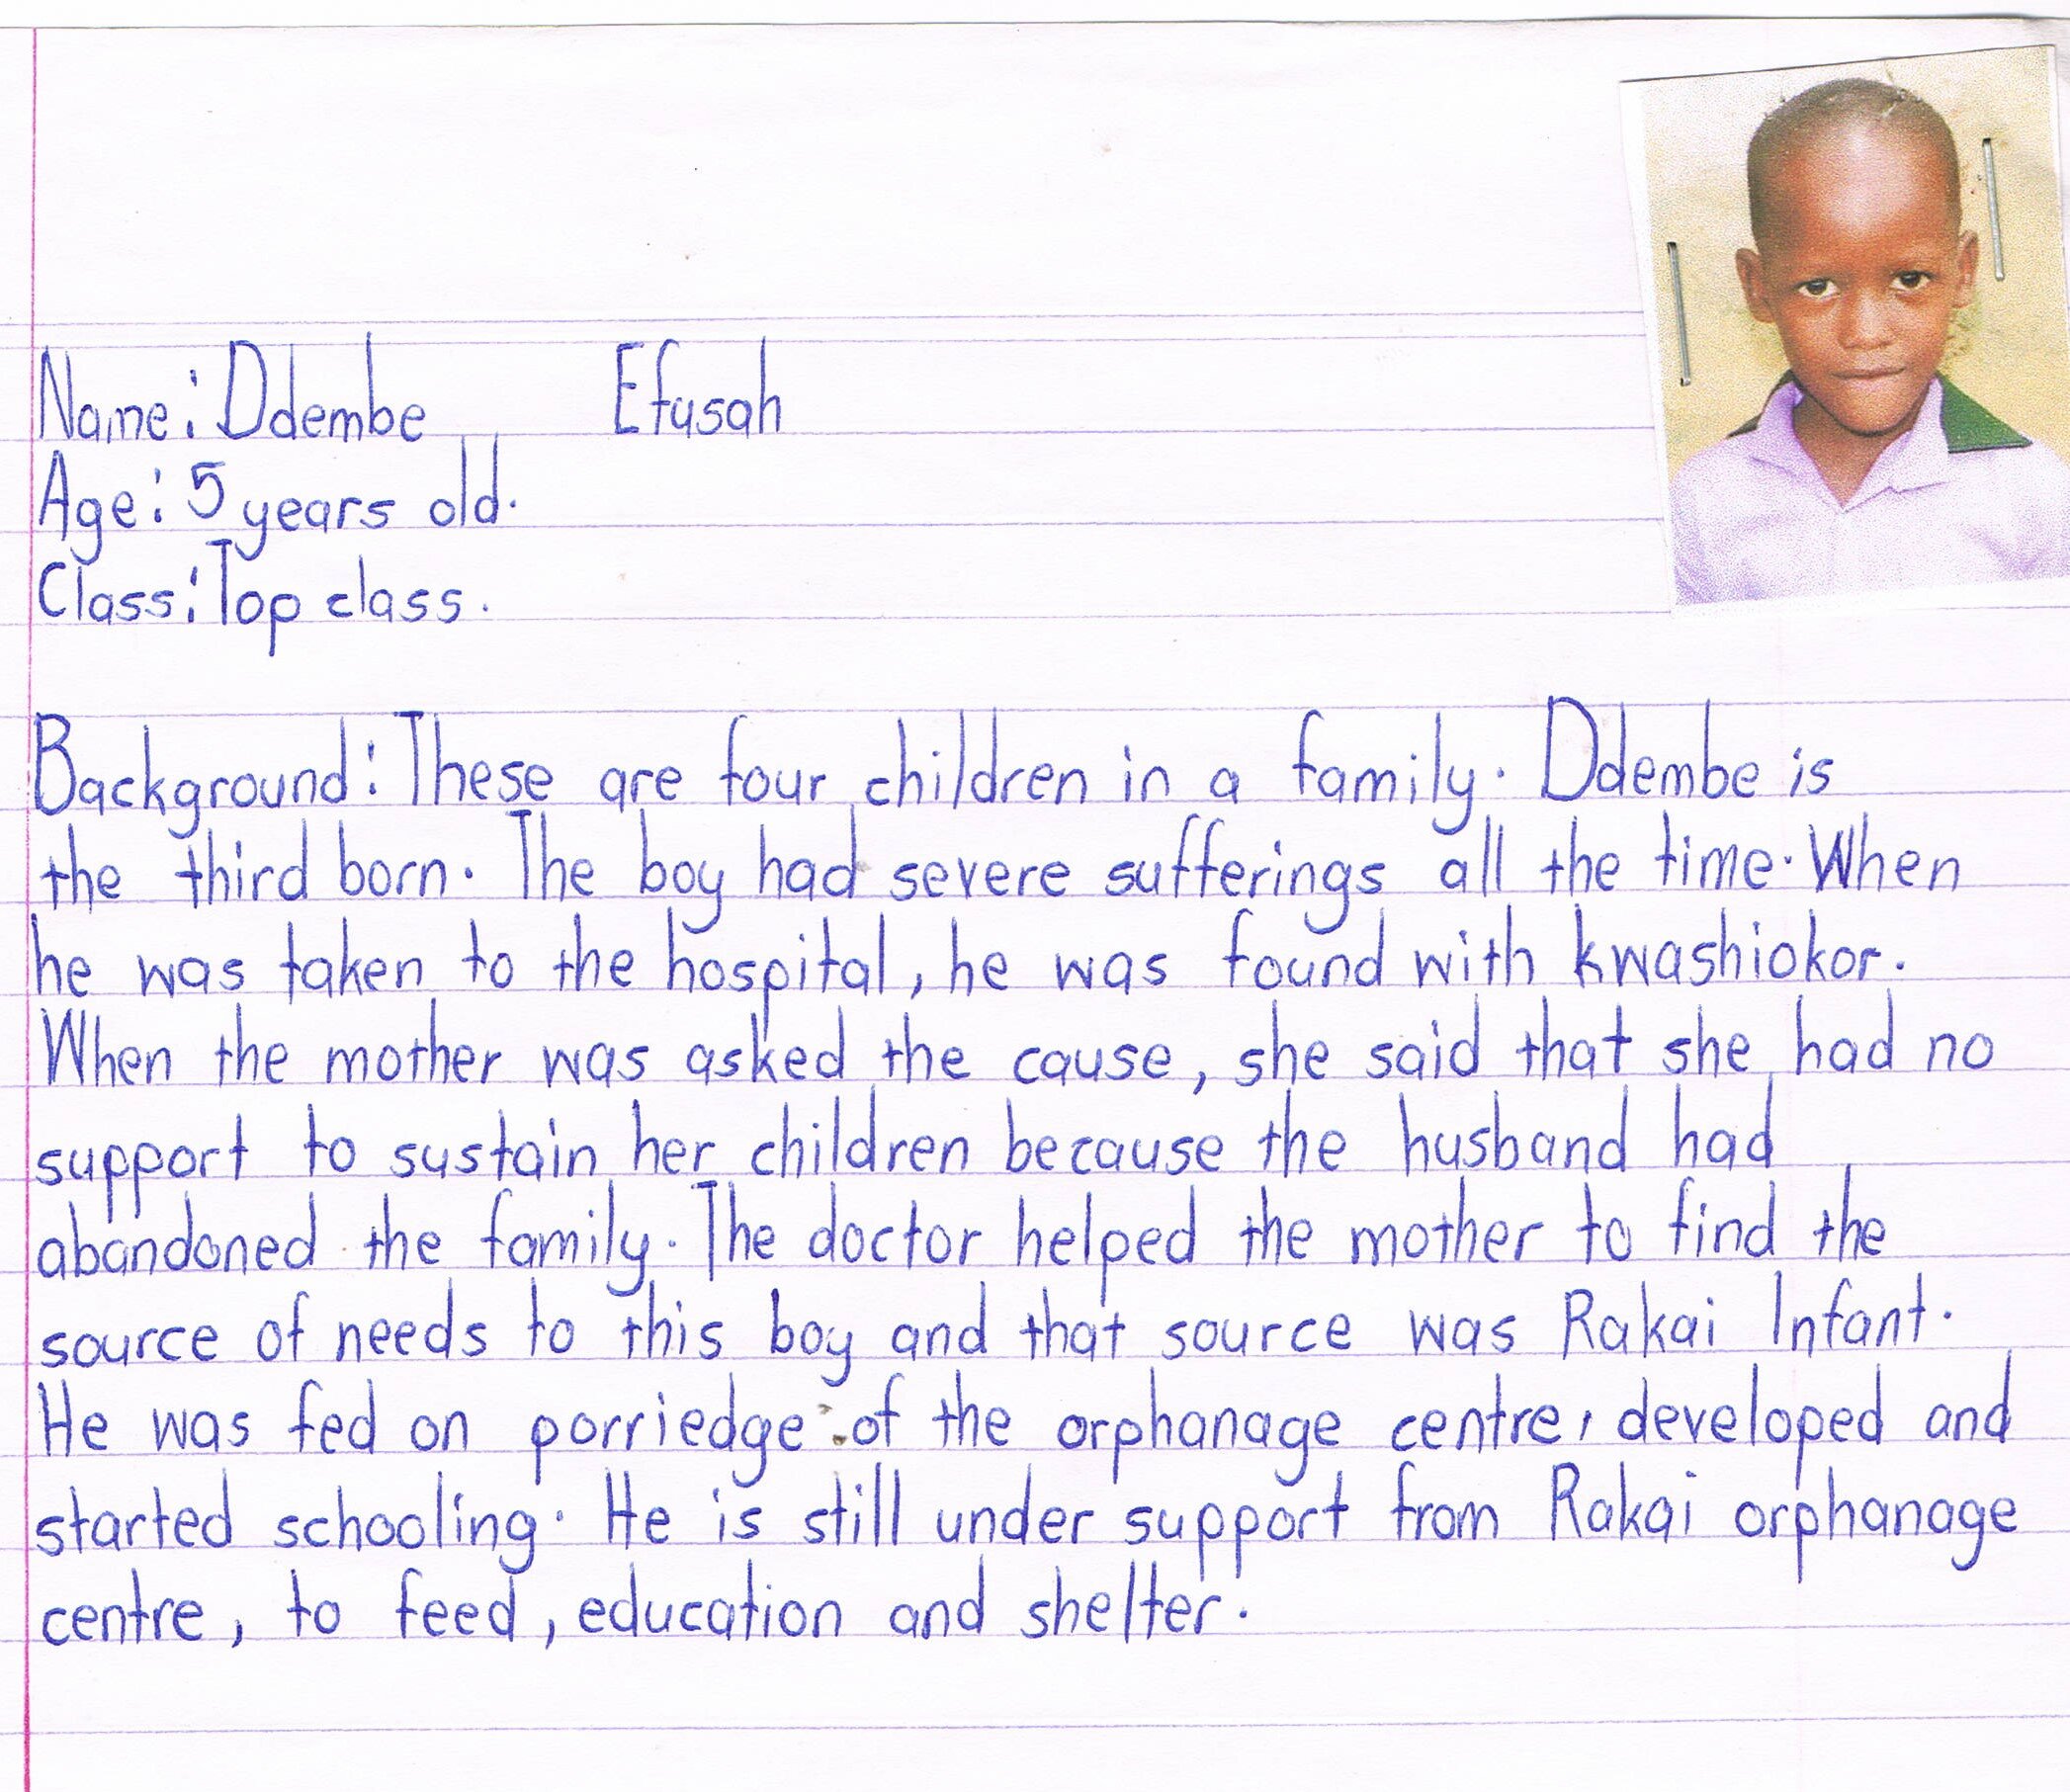 Name: Ddembe Efusah
Age: 5 years old.
Class: Top class.
Background: These are four children in a family. Ddembe is
the third born. The boy had severe sufferings all the time. When
he was taken to the hospital, he was found with kwashiokor.
When the mother was asked the cause, she said that she had no
support to sustain her children because the husband had
abandoned the family. The doctor helped the mother to find the
source of needs to this boy and that source was Rakai Infant.
He was fed on porriedge of the orphanage centre, developed and
started schooling. He is still under support from Rakai orphanage
centre, to feed, education and shelter.